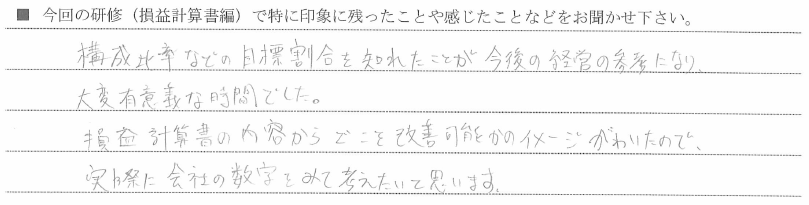 ■ 今回の研修（損益計算書編）で特に印象に残ったことや感じたことなどをお聞かせ下さい。
構成比率などの目標割合を知れたことが今後の経営の参考になり、
大変有意義な時間でした。
損益計算書の内容からどこを改善可能かのイメージがわいたので、
実際に会社の数字をみて考えたいて思います。